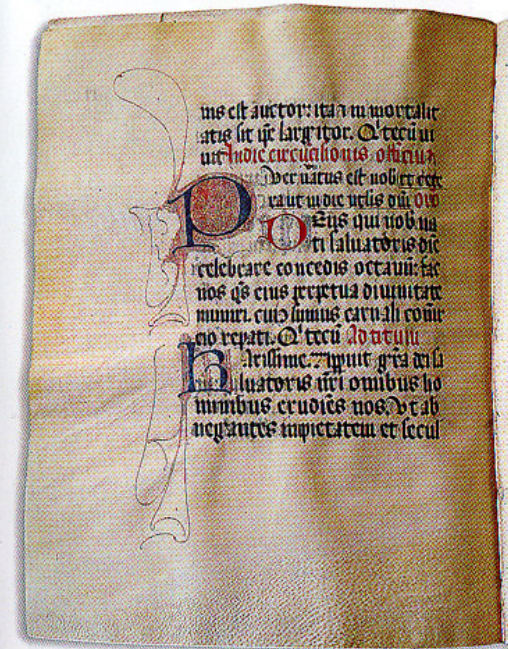 nis est auctor: ita ⁊ immortalit
atis sit ip̄e largitor. Q' tecū ui
uit In die circūcisionis officiū
Puer natus est nob̄ et cete
ra ut in die nt̄lis dn̄i Oro
Deus qui nob̄ na
ti saluatoris diē
celebrare concedis octauū: fac
nos q̄s eius perpetua diuinitate
muniri. cui⁹ sumus carnali com̄r
cio repati. Q' tecū Ad titum
Karissime. Apparuit gr̄a dei sa
luatoris n̄ri omnibus ho
minibus erudiēs nos. Vt ab
negantes impietatem et secul